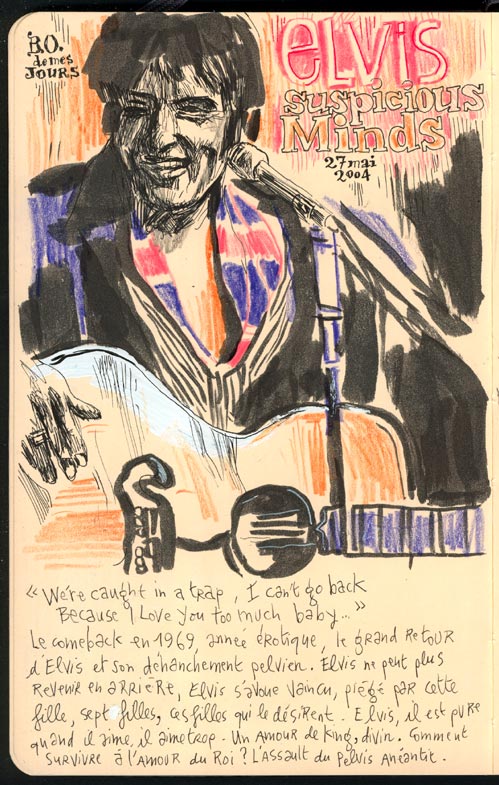 B.O.
de mes
JOURS
ELVIS
Suspicious
Minds
27 mai
2004
« We're caught in a trap, I can't go back
Because I Love you too much baby... »
Le comeback en 1969, année érotique, le grand retour
d'Elvis et son déhanchement pelvien. Elvis ne peut plus
revenir en arrière, Elvis s'avoue vaincu, piégé par cette
fille, sept filles, ces filles qui le désirent. Elvis, il est pure
quand il aime, il aime trop. Un amour de King, divin. Comment
survivre à l'amour du Roi ? L'assaut du Pelvis Anéantit.